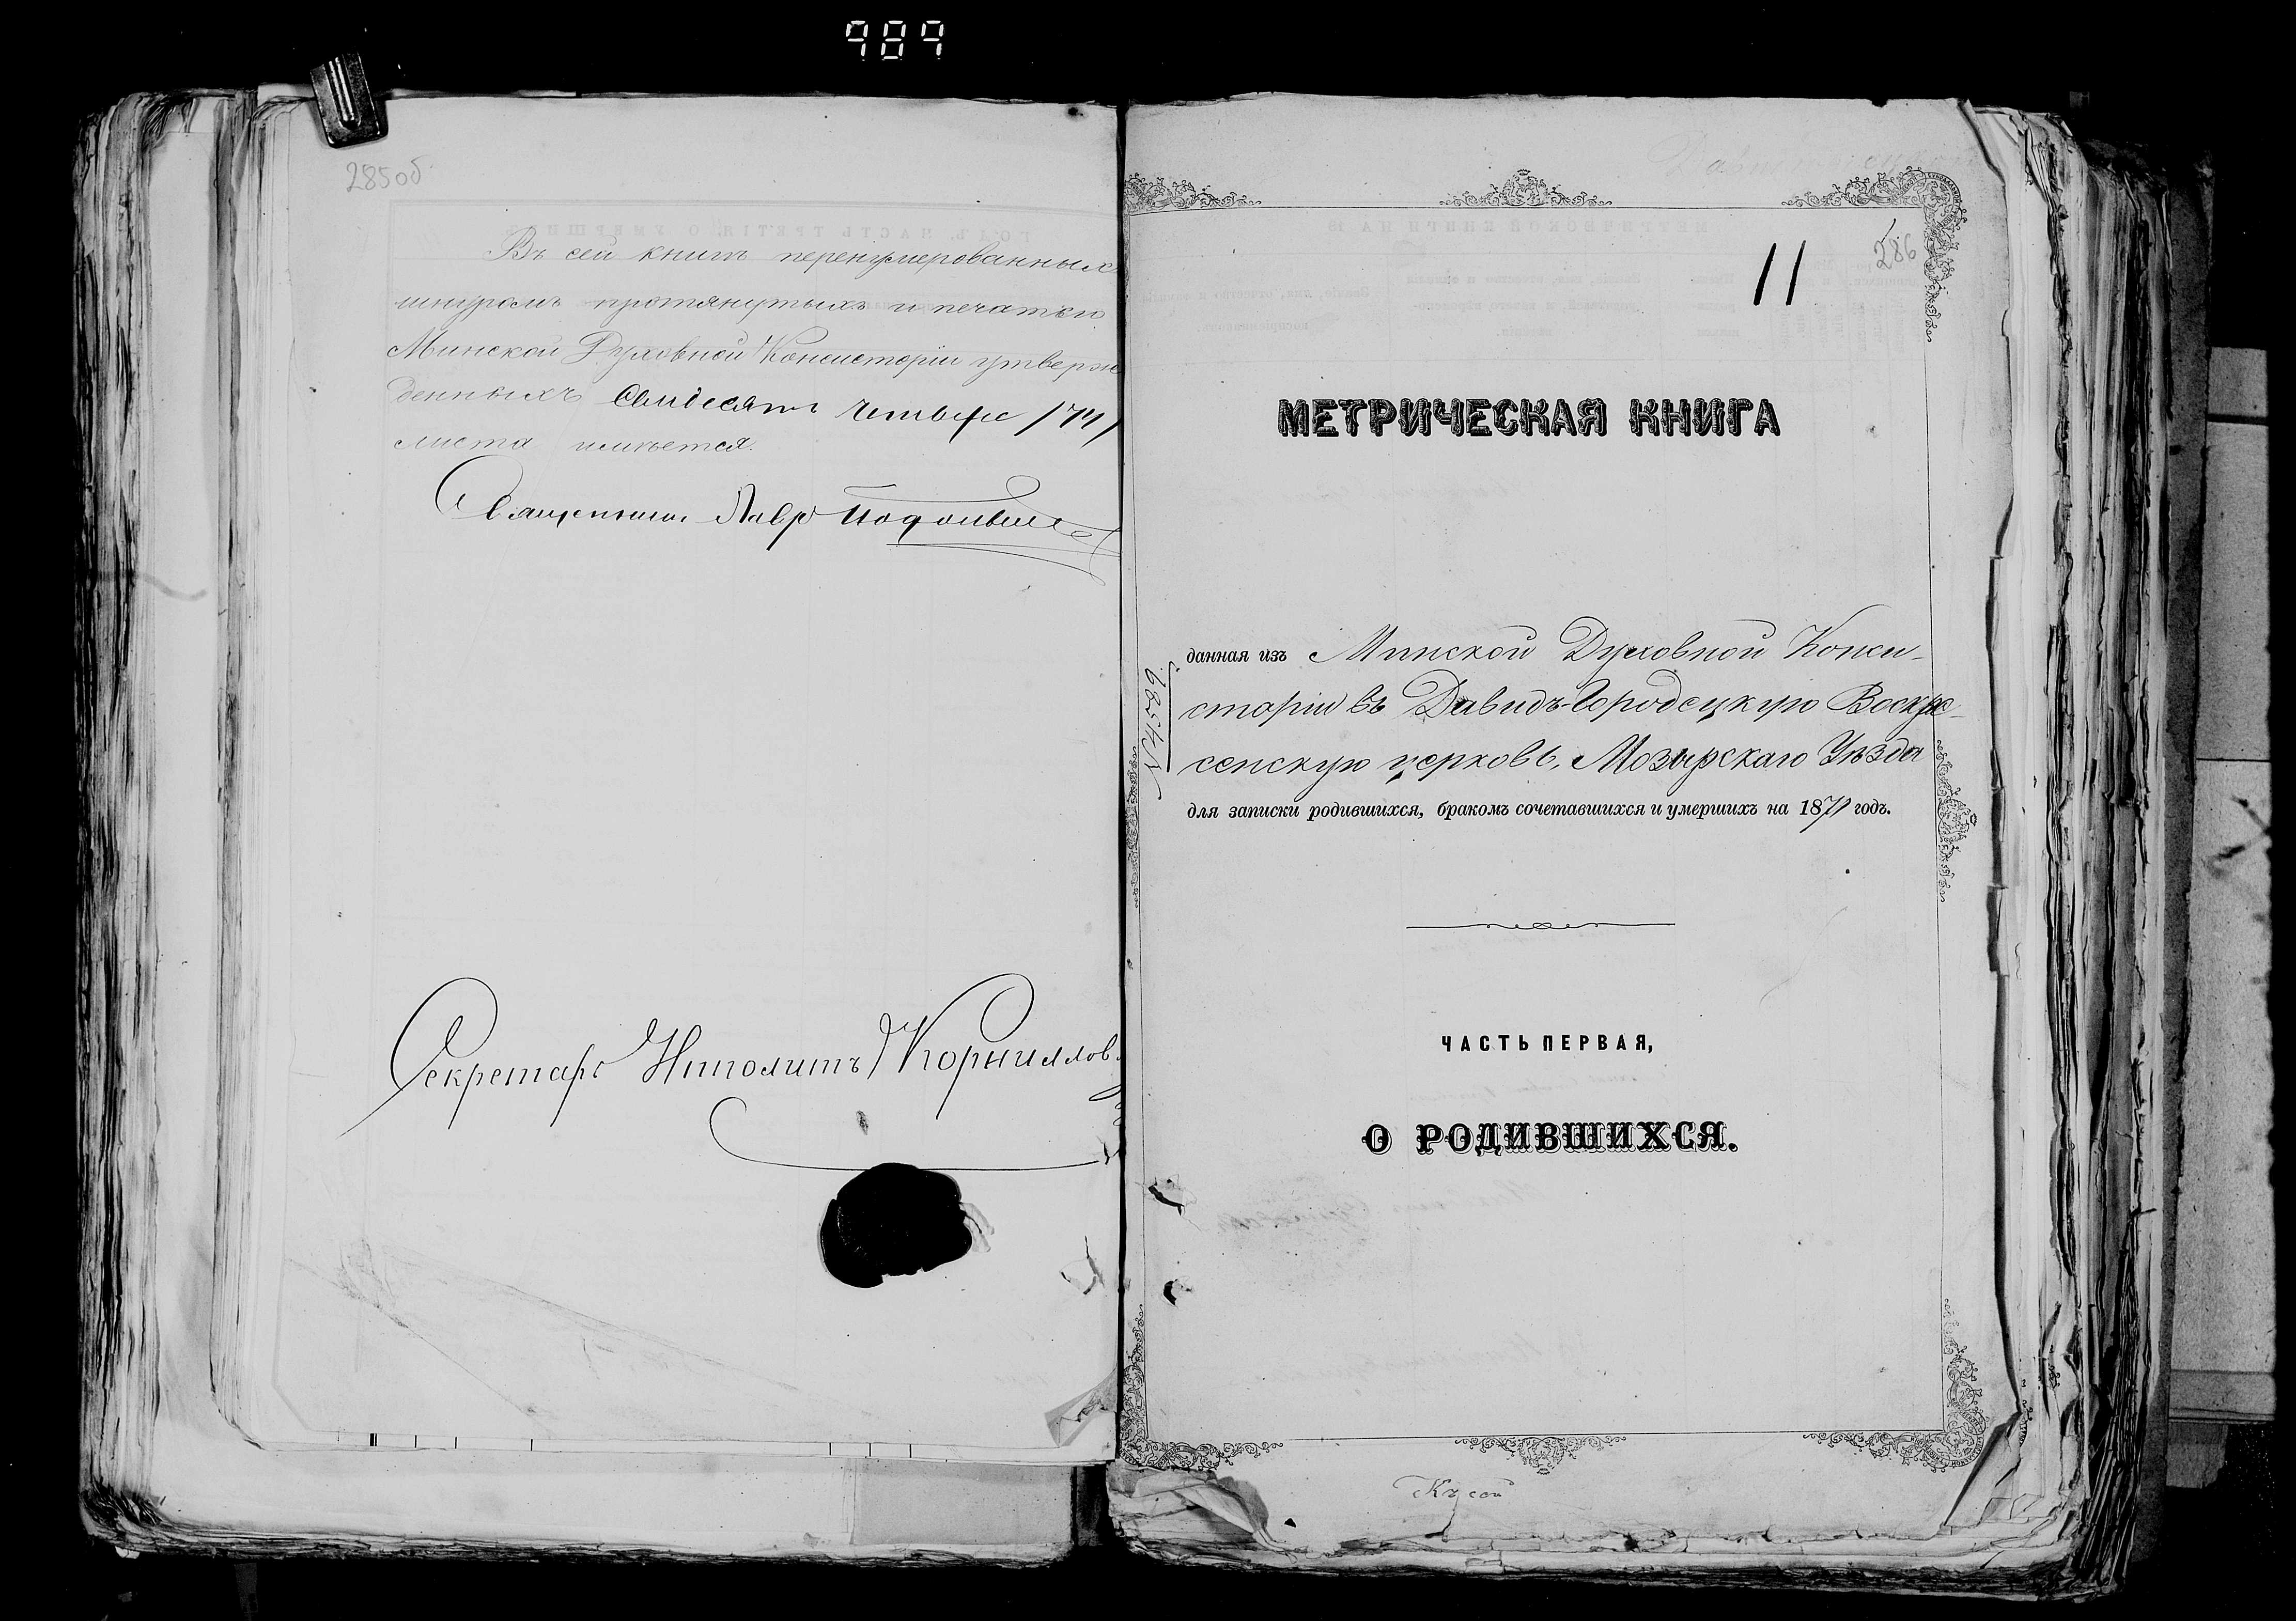 989
285об
Въ сей книгѣ перенумерованныхъ
шнуромъ протянутыхъ и печатью
Минской Духовной Консисторіи утверж
денныхъ семдесятъ четыре /74/
листа имѣется.
Священникъ Лавръ
Секретарь Ипполитъ Корниллов
11
286
МЕТРИЧЕСКАЯ КНИГА
данная изъ Минской Духовной Конси-
сторіи въ Давидъ-Городецкую Воскре-
сенскую церковь, Мозырскаго Уѣзда
для записки родившихся, бракомъ сочетавшихся и умершихъ на 1871 годъ.
№ 4589
ЧАСТЬ ПЕРВАЯ,
О РОДИВШИХСЯ.
Къ сей